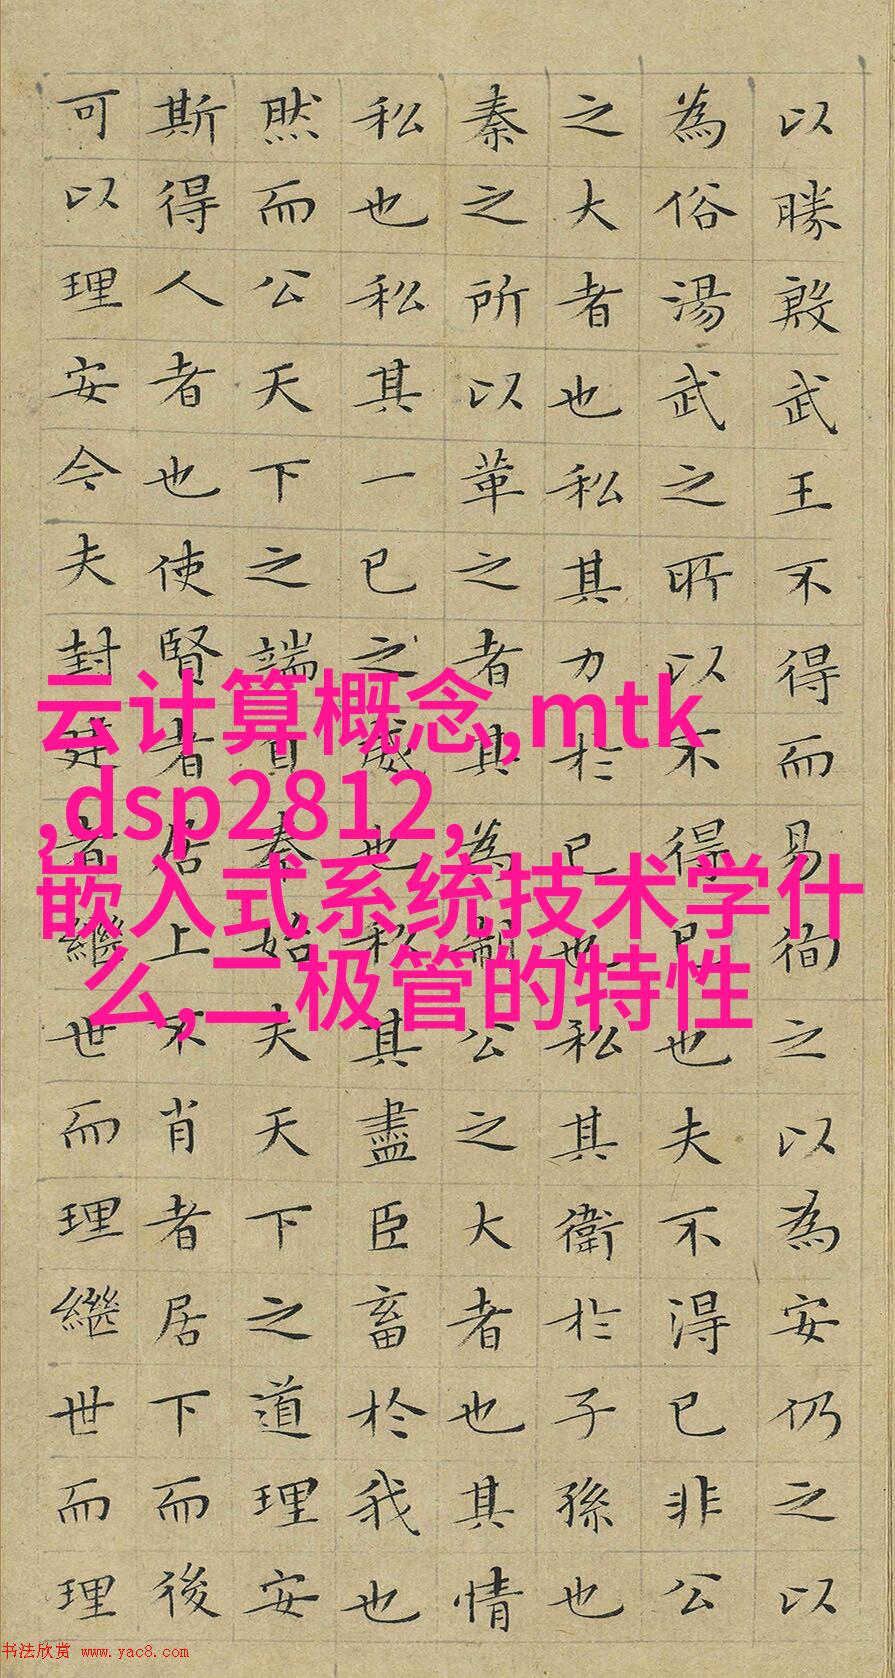 以勝殷武王不得而易徇之以為安仍之以
為俗湯武之所以不得已也夫不得已非公
之大者也私其力於已也私其衛於子孫也
秦之所以革之者其為制公之大者也其情
私也私其一已之威也私其盡臣畜於我也
然而公天下之端自秦始夫天下之道理安
斯得人者也使賢者居上不肖者居下而後
可以理安今夫封建者繼世而理繼世而理
云计算概念,mtk
,dsp2812,
嵌入式系统技术学什
么,二极管的特性
书法欣赏 www.yac8.com